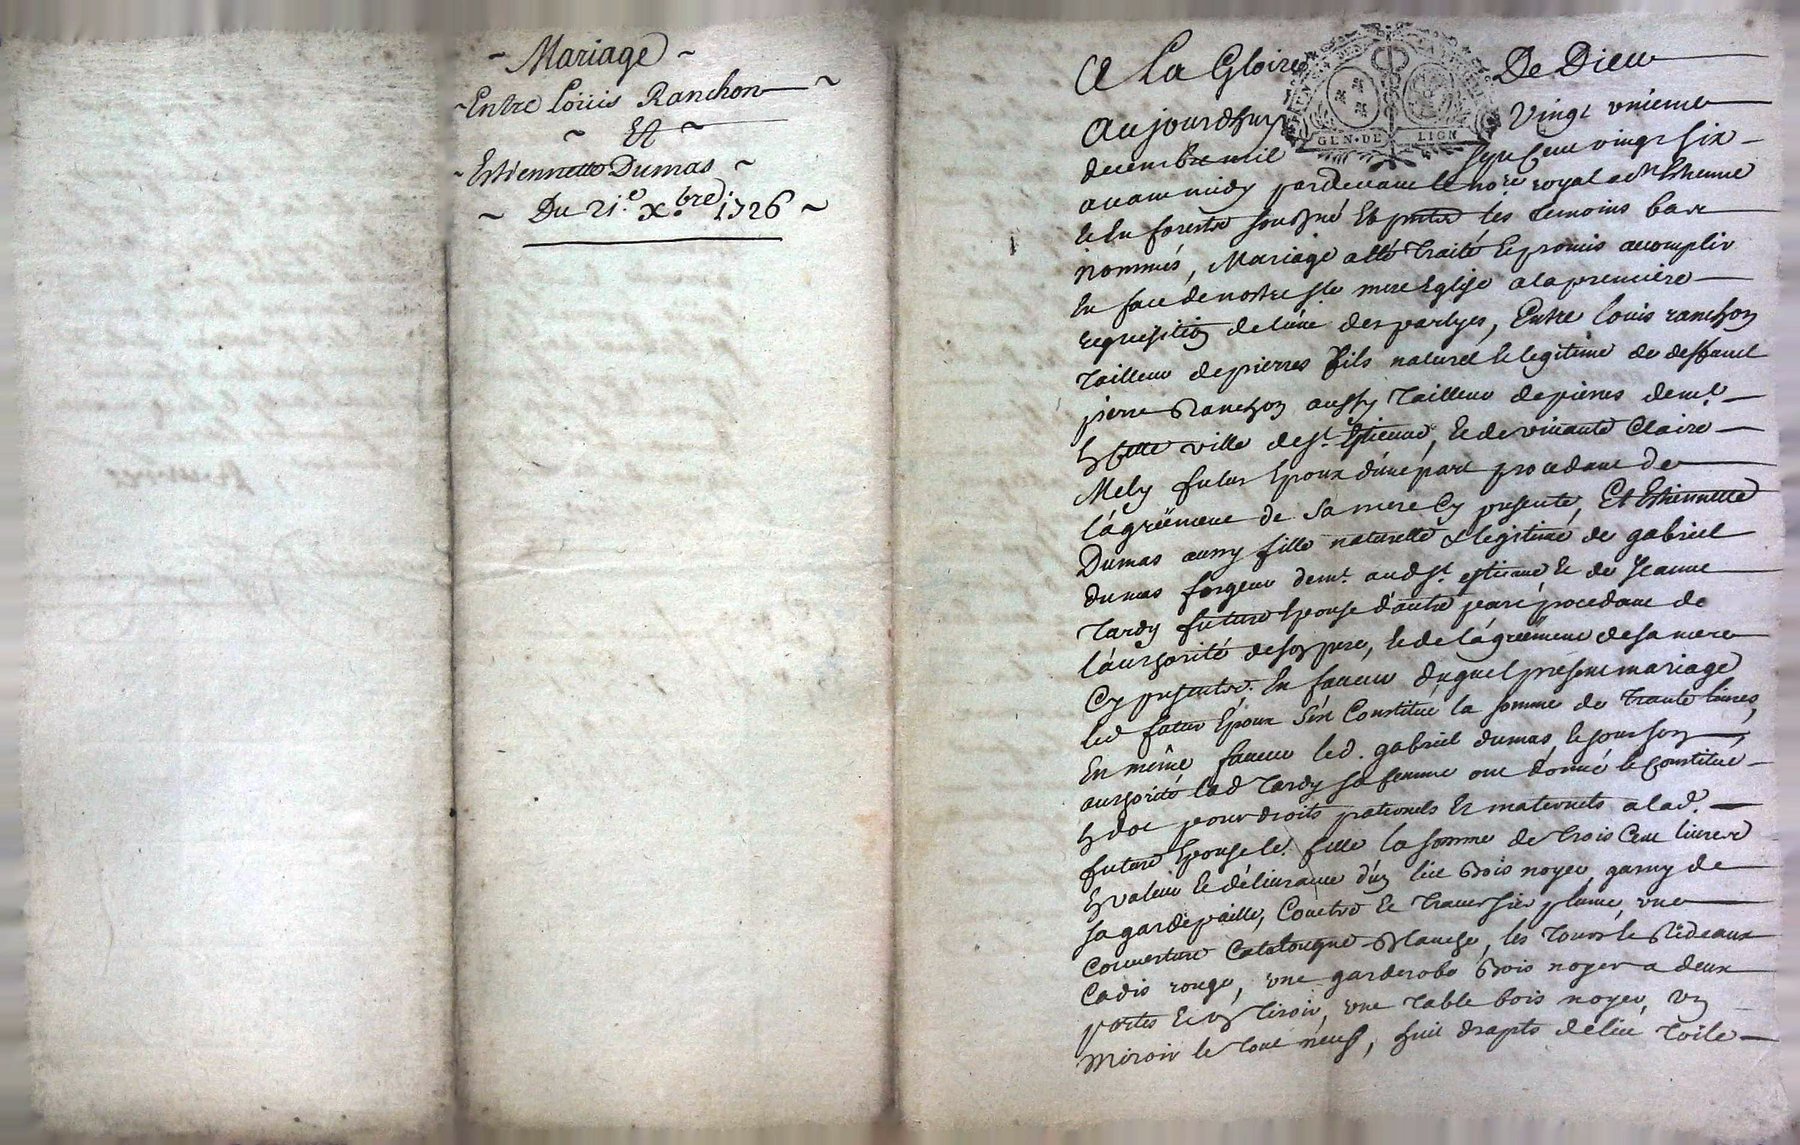 ~ Mariage ~
~ Entre Loüis Ranchon ~
~ Et ~
~ Estiennette Dumas ~
~ Du 21.e xbre 1726 ~
A La Gloire De Dieu
GEN·DE LION
Aujourdhuy Vingt unieme
decembre mil sept cent vingt six
avant midy pardevant le no.re royal a St Estienne
en forestz soubzné Et les temoins bas
nommés, Mariage a été traité et promis accomplir
En face de nostre ste mere Eglise a la premiere
requisition de lune des partyes, Entre loüis ranchon
Tailleur de pierres fils naturel et legitime de deffunct
pierre Ranchon aussy Tailleur de pierres demt.
En cette ville de St. Estienne, et de vivante Claire
Mely futur Epoux d'une part procedant de
l'agréement de sa mere Cy presente, Et Estiennette
Dumas aussy fille naturelle & legitime de gabriel
dumas forgeur demt. aud St. estienne et de Jeanne
Tardy future Epouse d'autre part procedant de
l'authorité de son pere, et de l'agréement de sa mere
Cy presentes. En faveur duquel present mariage
led futur Epoux s'est Constitué la somme de trante livres,
En même faveur led. gabriel dumas, et sous son
authorité lad Tardy sa femme ont donné et constitué
En dot pour droits paternels et maternels a lad.
future Epouse le. fille la somme de trois Cent livres
En valeur et délivrance d'un lict Bois noyer, garny de
sa gardepaille, Couetre et traversier plume, une
Couverture Catalougne Blanche, les tours et Rideaux
Cadis rouge, une garderobe Bois noyer a deux
portes et un Tiroir, une table bois noyer, un
Miroir le tout neuf, huit draps de lict toile